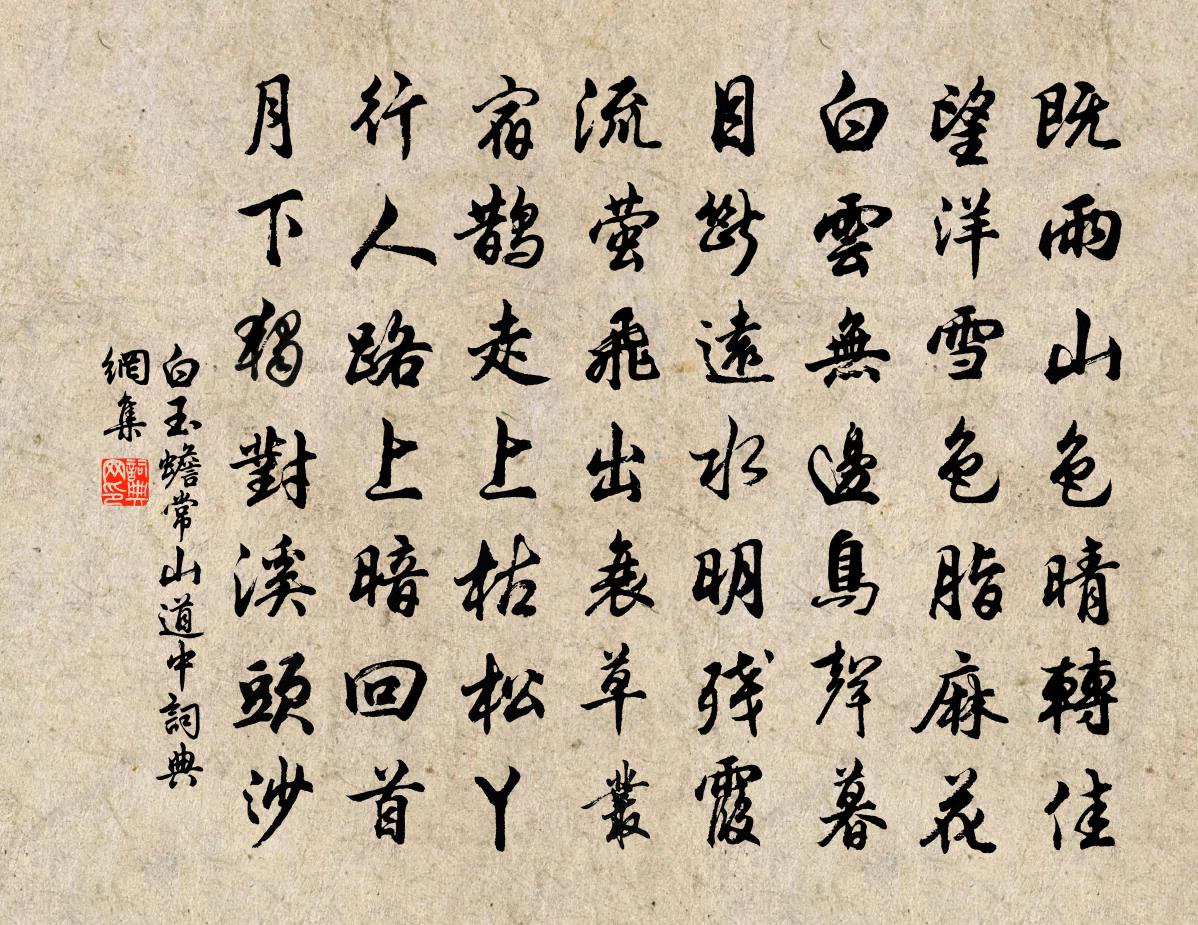 既雨山色晴轉佳
望洋雪色脂麻花
白雲無邊鳥聲暮
目斷遠水明殘霞
流萤飛出衰草叢
宿鹊走上枯松丫
行人路上暗回首
月下獨對溪頭沙
白玉蟾常山道中詞典
網集
詞典
网印